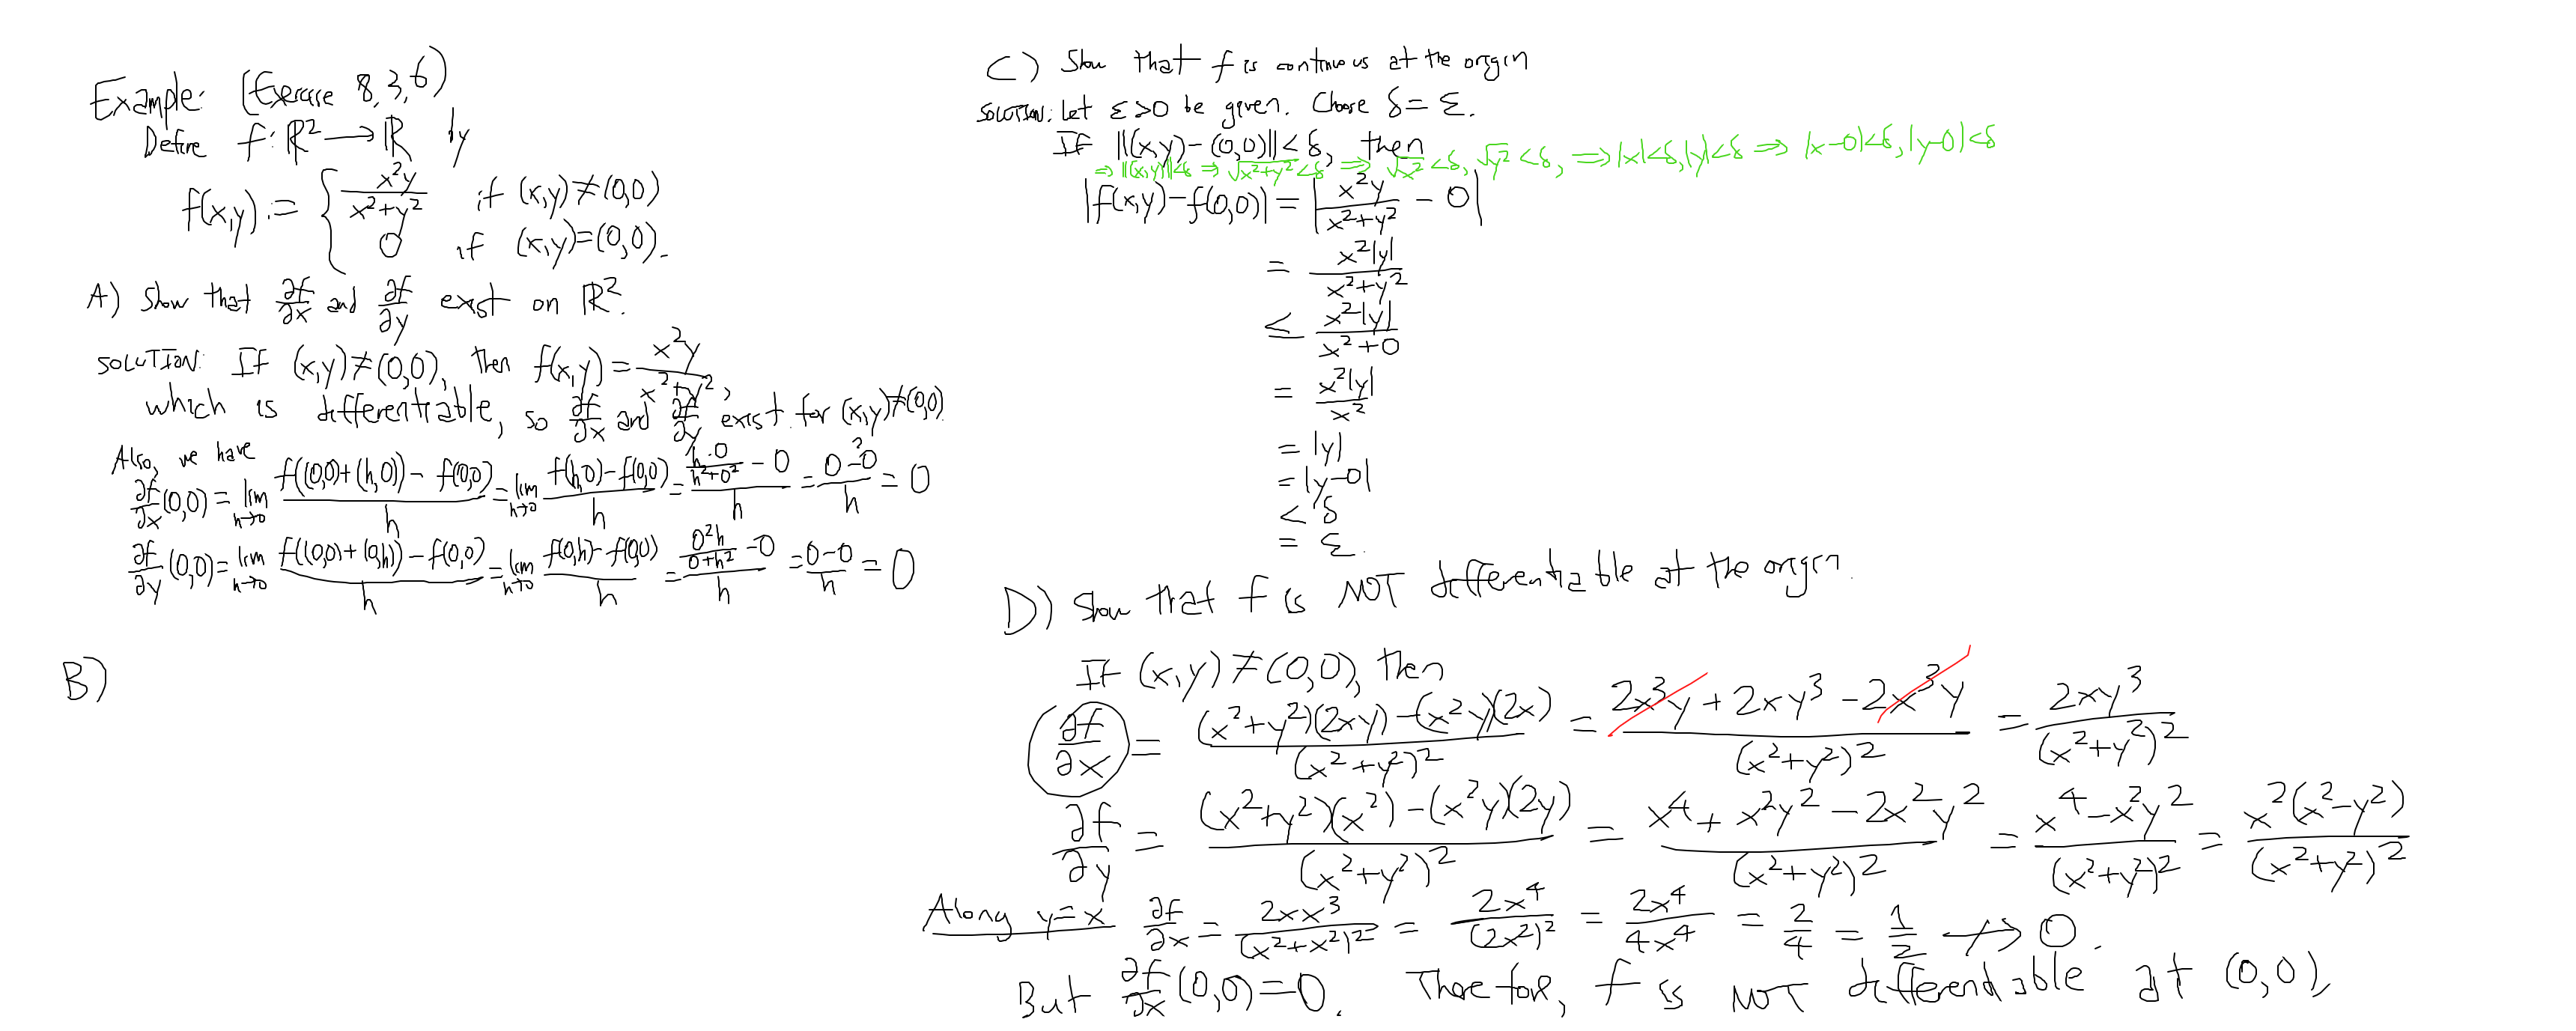 Example: (Exercise 8.3.6)
Define f: ℝ² → ℝ by
f(x,y) := { x²y/(x²+y²) if (x,y)≠(0,0)
0 if (x,y)=(0,0).
A) Show that ∂f/∂x and ∂f/∂y exist on ℝ².
SOLUTION: If (x,y)≠(0,0), then f(x,y) = x²y/(x²+y²),
which is differentiable, so ∂f/∂x and ∂f/∂y exist for (x,y)≠(0,0)
Also, we have
∂f/∂x (0,0) = lim h→0 (f((0,0)+(h,0)) - f(0,0))/h = lim h→0 (f(h,0)-f(0,0))/h = (h²·0/(h²+0²) - 0)/h = (0-0)/h = 0
∂f/∂y (0,0) = lim h→0 (f((0,0)+(0,h)) - f(0,0))/h = lim h→0 (f(0,h)-f(0,0))/h = (0²h/(0+h²) - 0)/h = (0-0)/h = 0
B)
C) Show that f is continuous at the origin
SOLUTION: Let ε>0 be given. Choose δ = ε.
If ||(x,y)-(0,0)|| < δ, then
⇒ ||(x,y)||<δ ⇒ √(x²+y²) < δ ⇒ √x² < δ, √y² < δ, ⇒ |x|<δ, |y|<δ ⇒ |x-0|<δ, |y-0|<δ
|f(x,y)-f(0,0)| = |x²y/(x²+y²) - 0|
= x²|y|/(x²+y²)
≤ x²|y|/(x²+0)
= x²|y|/x²
= |y|
= |y-0|
< δ
= ε.
D) Show that f is NOT differentiable at the origin.
If (x,y)≠(0,0), then
∂f/∂x = ((x²+y²)(2xy)-(x²y)(2x))/(x²+y²)² = (2x³y + 2xy³ - 2x³y)/(x²+y²)² = 2xy³/(x²+y²)²
∂f/∂y = ((x²+y²)(x²)-(x²y)(2y))/(x²+y²)² = (x⁴+x²y²-2x²y²)/(x²+y²)² = (x⁴-x²y²)/(x²+y²)² = x²(x²-y²)/(x²+y²)²
Along y=x ∂f/∂x = 2xx³/(x²+x²)² = 2x⁴/(2x²)² = 2x⁴/4x⁴ = 2/4 = 1/2 ↛ 0.
But ∂f/∂x (0,0) = 0. Therefore, f is NOT differentiable at (0,0).